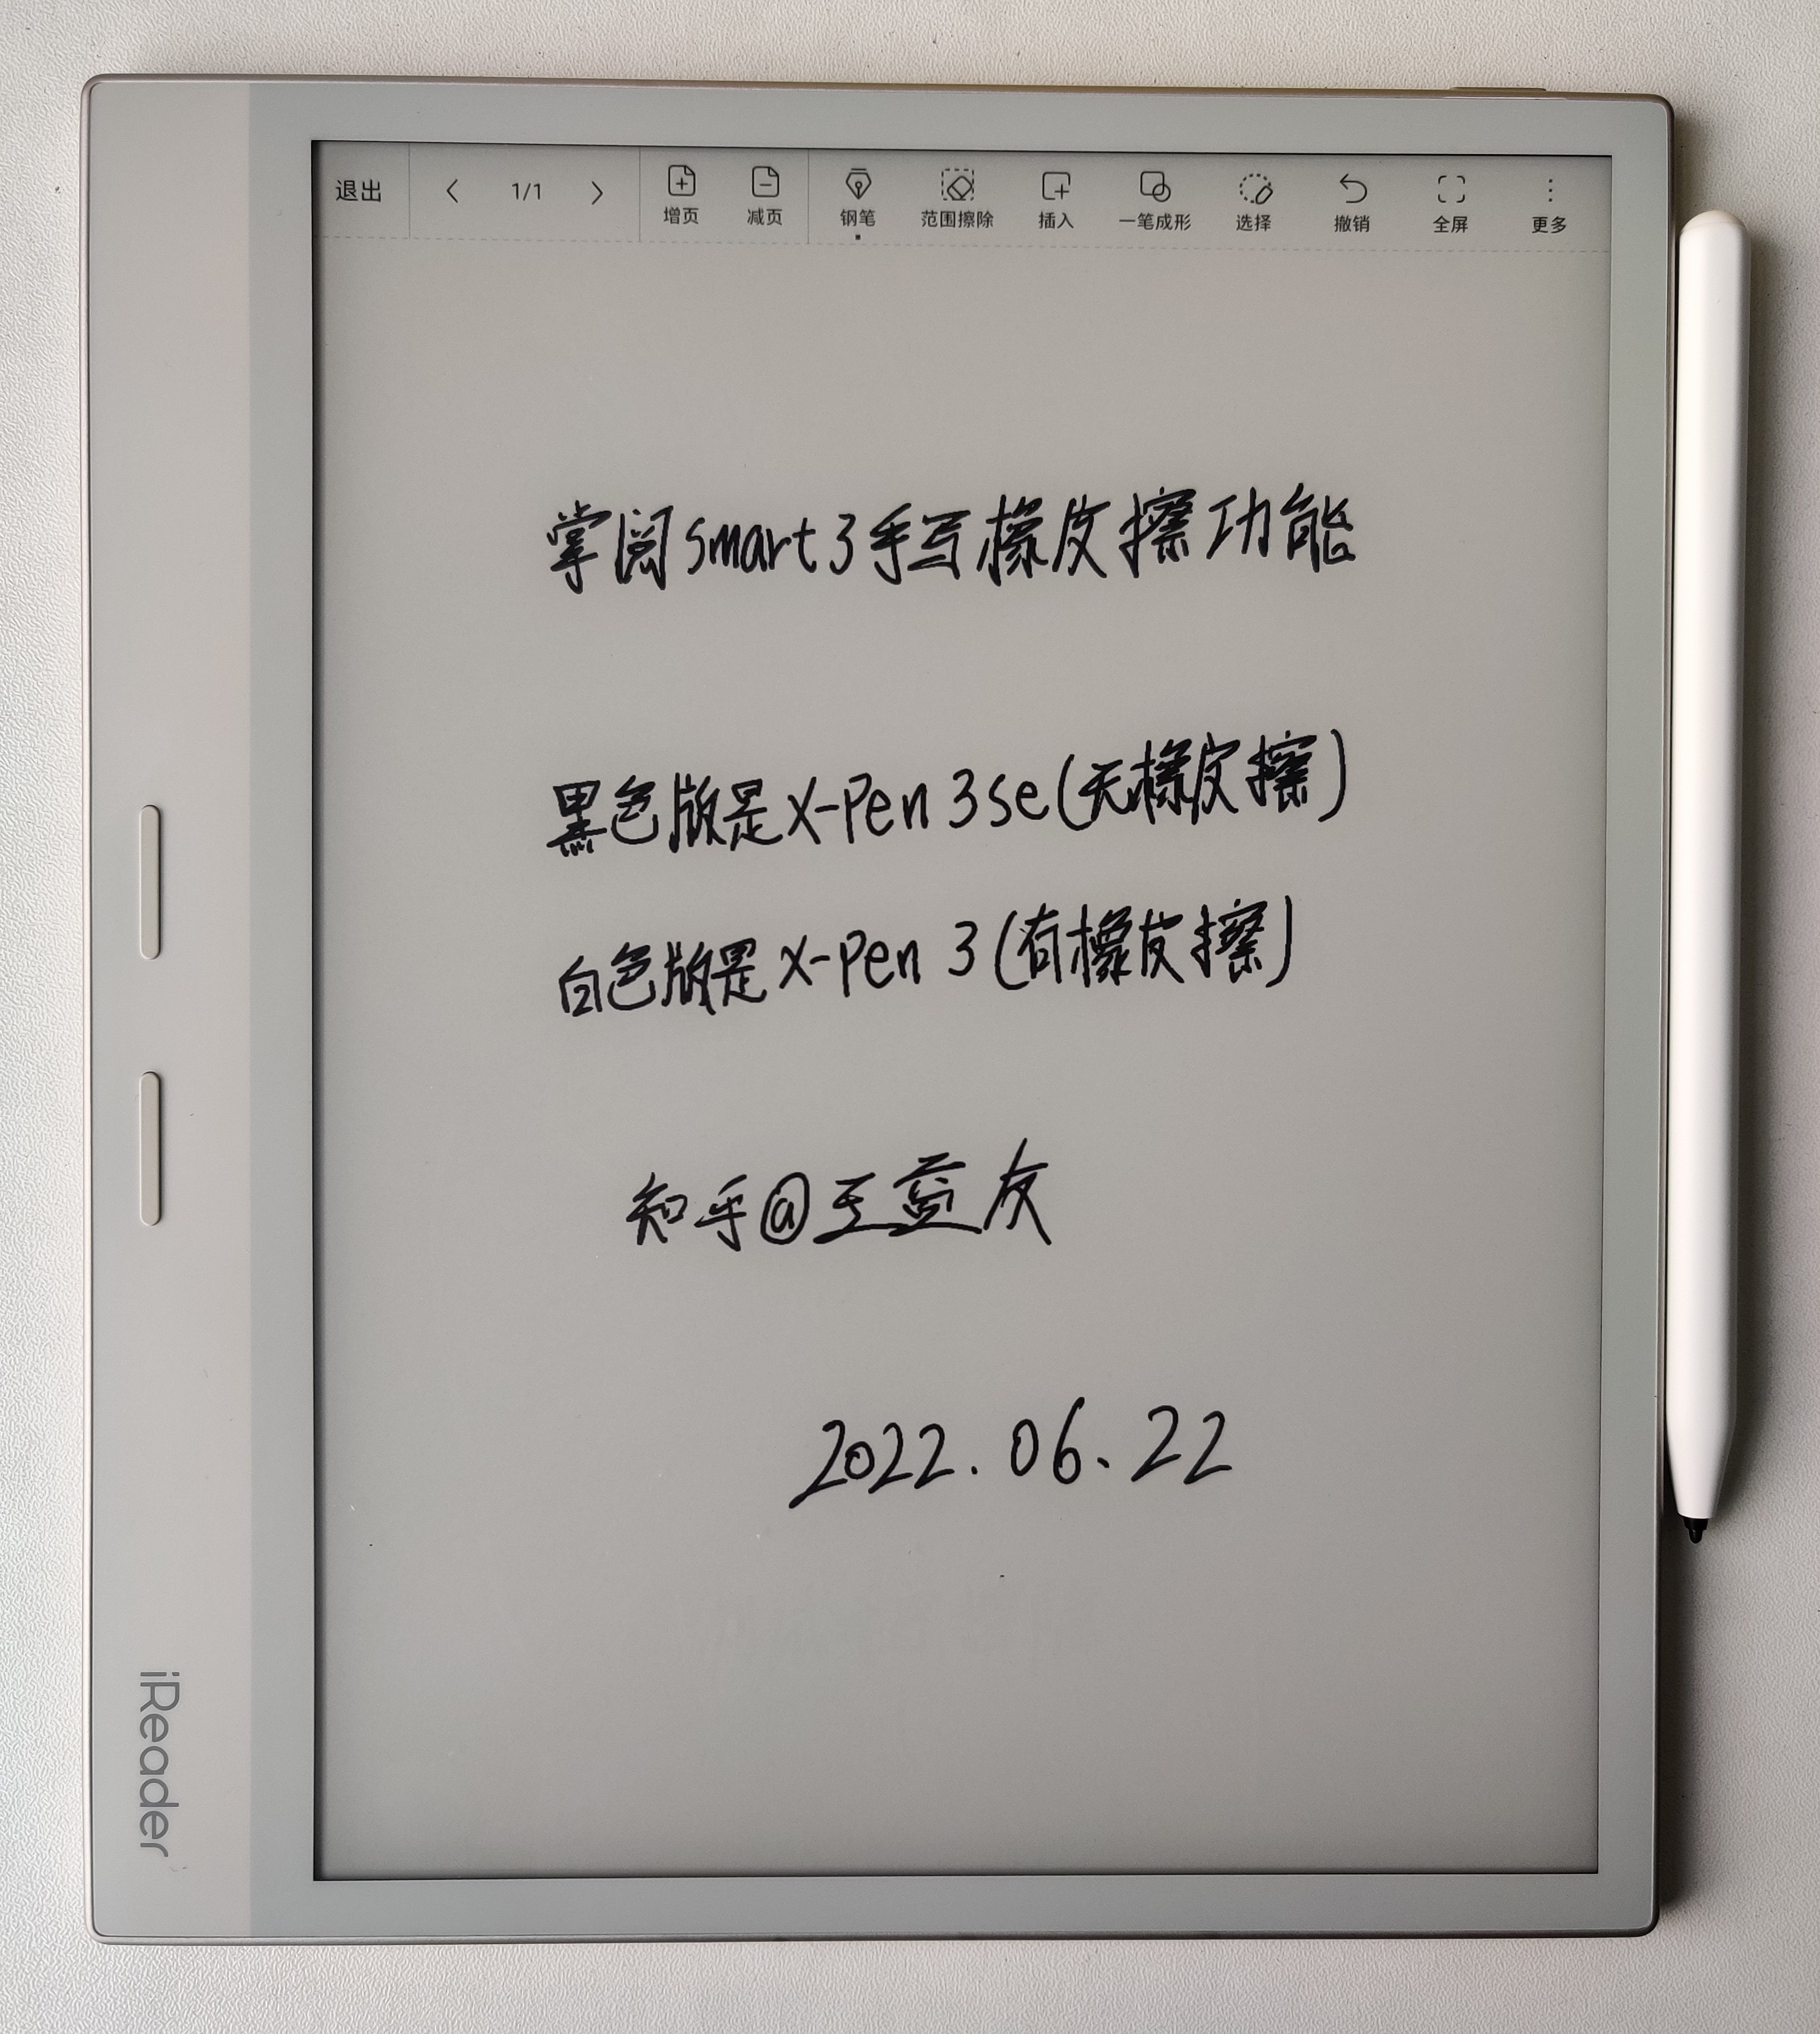 退出 < 1/1 > 增页 减页 钢笔 范围擦除 插入 一笔成形 选择 撤销 全屏 更多
掌阅smart3手写橡皮擦功能
黑色版是X-Pen 3se(无橡皮擦)
白色版是X-Pen 3(有橡皮擦)
知乎@王蓝友
2022.06.22
iReader